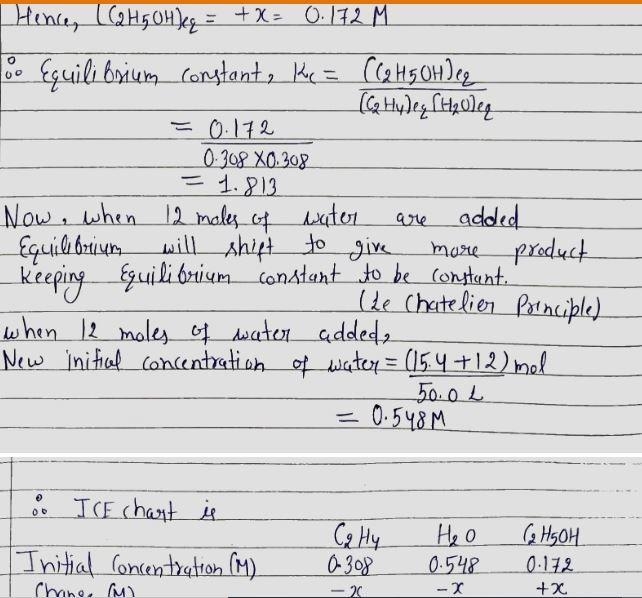 Hence, (C2H5OH)eq = +x = 0.172 M
∴ Equilibrium constant, Kc = (C2H5OH)eq
(C2H4)eq (H2O)eq
= 0.172
0.308 X0.308
= 1.813
Now, when 12 moles of water are added
Equilibrium will shift to give more product
keeping Equilibrium constant to be constant.
(Le Chatelier Principle)
when 12 moles of water added,
New initial concentration of water = (15.4 +12) mol
50.0 L
= 0.548M
∴ ICE chart is
C2H4 H2O C2H5OH
Initial Concentration (M) 0.308 0.548 0.172
Change (M) -x -x +x